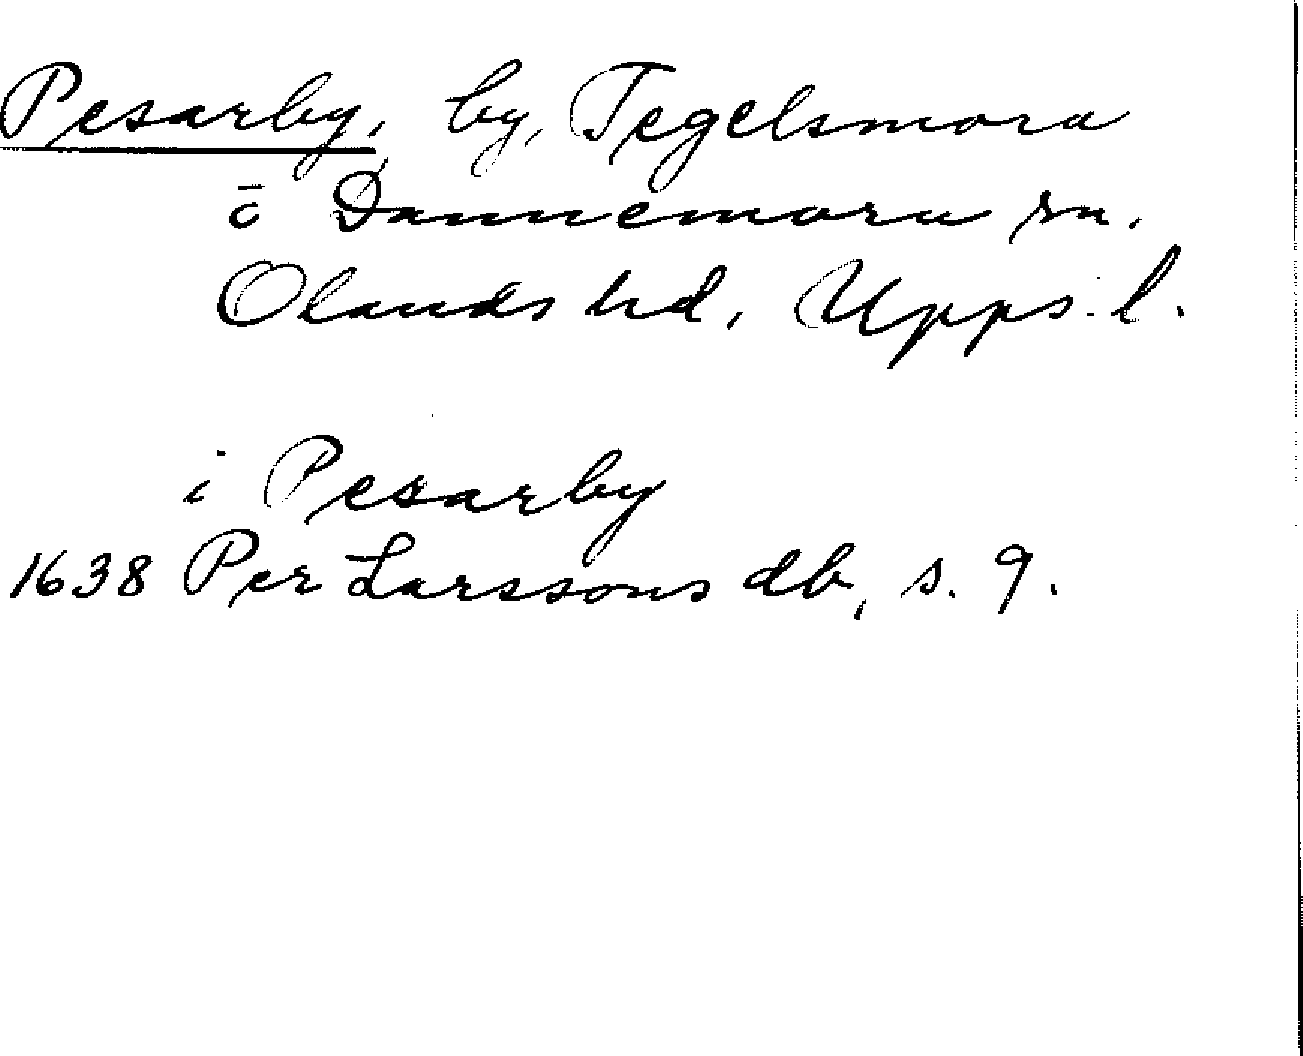 Pesarby, by, Tegelsmora
o Dannemora sn.
Olands hd, Upps. l.
i Pesarby
1638 Per Larssons db, s. 9.